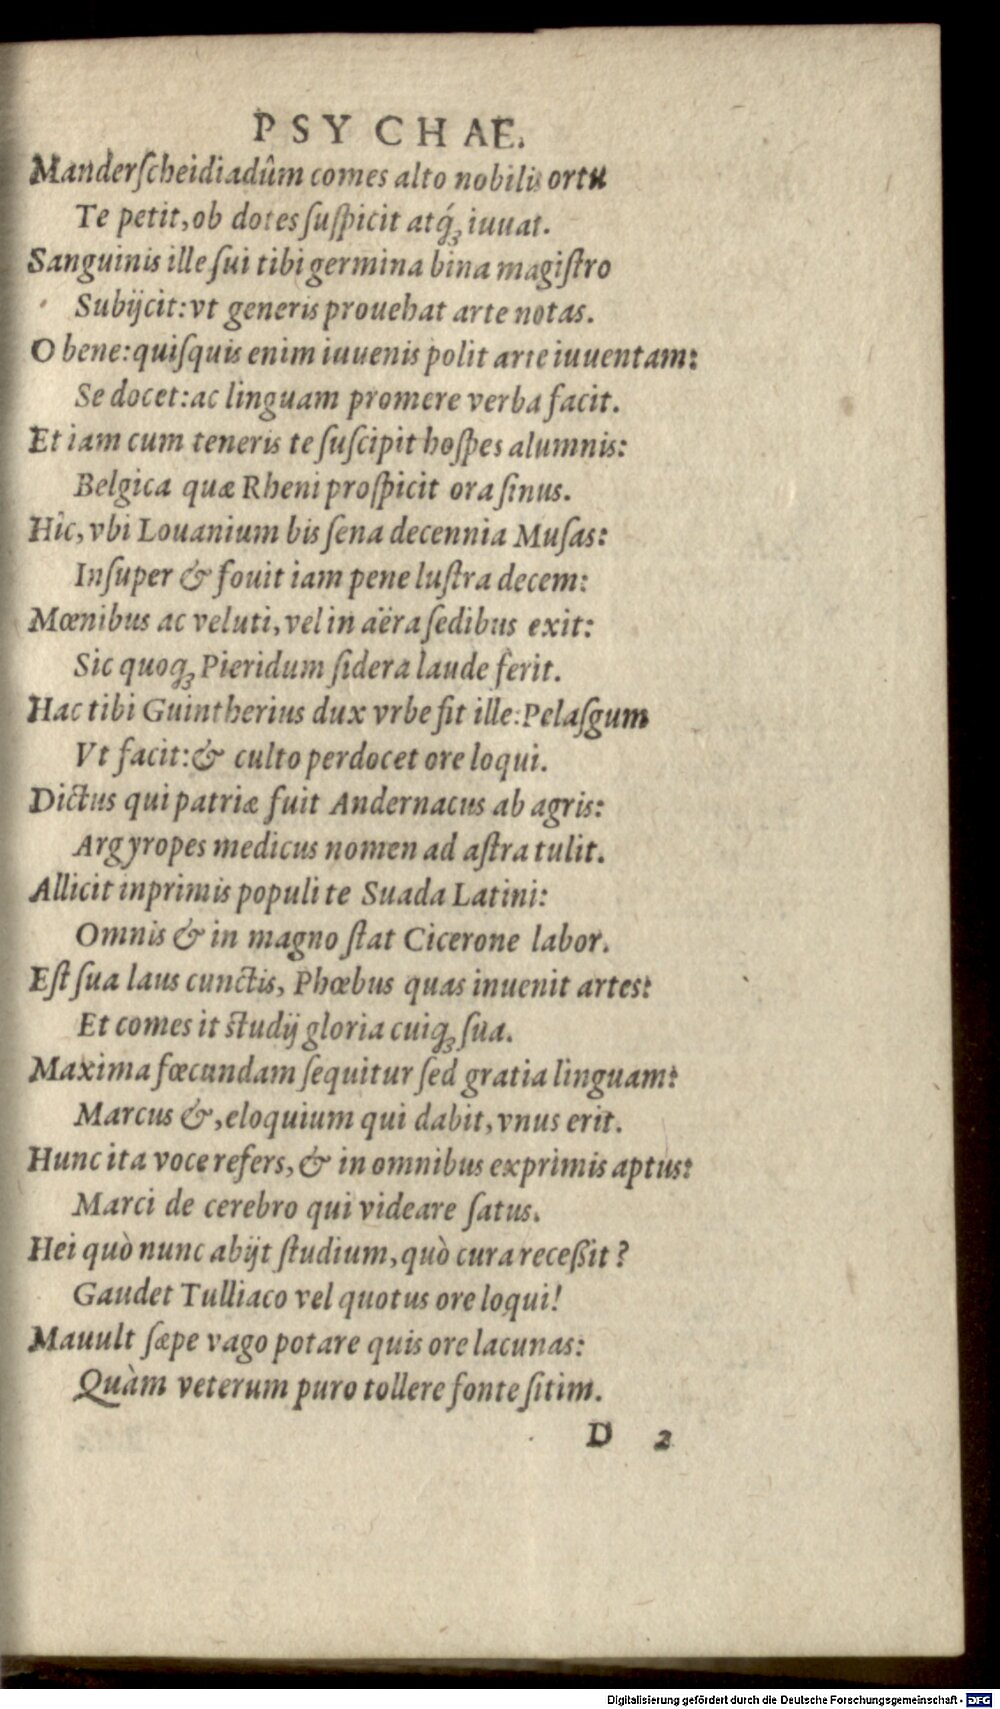 PSYCHAE.
Manderſcheidiadûm comes alto nobilis ortu
Te petit, ob dotes ſuſpicit atq́ꝫ iuuat.
Sanguinis ille ſui tibi germina bina magiſtro
Subijcit: vt generis prouehat arte notas.
O bene: quiſquis enim iuuenis polit arte iuuentam:
Se docet: ac linguam promere verba facit.
Et iam cum teneris te ſuſcipit hoſpes alumnis:
Belgica quæ Rheni proſpicit ora ſinus.
Hîc, vbi Louanium bis ſena decennia Muſas:
Inſuper & fouit iam pene luſtra decem:
Mœnibus ac veluti, vel in aëra ſedibus exit:
Sic quoqꝫ Pieridum ſidera laude ferit.
Hac tibi Guintherius dux vrbe fit ille: Pelaſgum
Vt facit: & culto perdocet ore loqui.
Dictus qui patriæ fuit Andernacus ab agris:
Argyropes medicus nomen ad aſtra tulit.
Allicit inprimis populi te Suada Latini:
Omnis & in magno ſtat Cicerone labor.
Eſt ſua laus cunctis, Phœbus quas inuenit artes:
Et comes it ſtudij gloria cuiqꝫ ſua.
Maxima fœcundam ſequitur ſed gratia linguam:
Marcus &, eloquium qui dabit, vnus erit.
Hunc ita voce refers, & in omnibus exprimis aptus:
Marci de cerebro qui videare ſatus.
Hei quò nunc abijt ſtudium, quò cura receßit?
Gaudet Tulliaco vel quotus ore loqui!
Mauult ſæpe vago potare quis ore lacunas:
Quàm veterum puro tollere fonte ſitim.
D 2
Digitalisierung gefördert durch die Deutsche Forschungsgemeinschaft - DFG